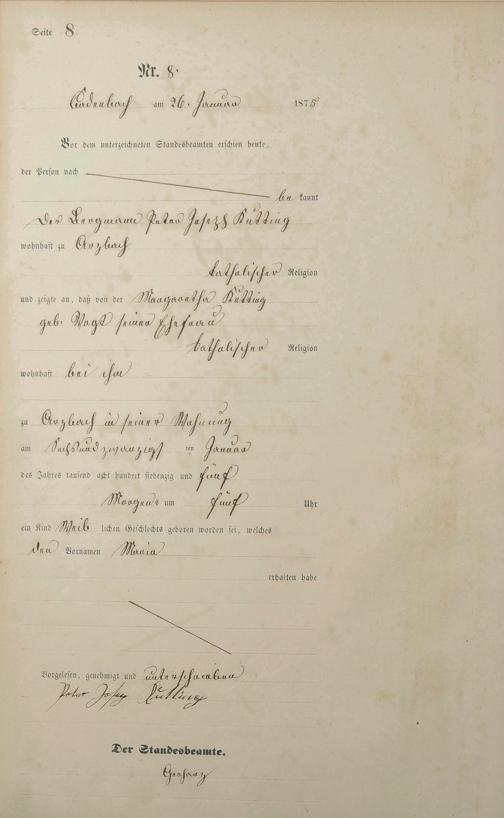 Seite 8
Nr. 8.
Cadenbach am 26. Januar 1875
Vor dem unterzeichneten Standesbeamten erschien heute,
der Person nach
be kannt
der Bergmann Peter Joseph Kutting
wohnhaft zu Arzbach
katholischer Religion
und zeigte an, daß von der Maargaretha Kutting
geb. Vogt seiner Ehefrau
katholischer Religion
wohnhaft bei ihm
zu Arzbach in seiner Wohnung
am Sechsundzwanzigst ten Januar
des Jahres tausend acht hundert siebenzig und fünf
Morgens um fünf Uhr
ein Kind Weib lichen Geschlechts geboren worden sei, welches
den Vornamen Maria
erhalten habe
Vorgelesen, genehmigt und unterschrieben
Peter Josep Kutting
Der Standesbeamte.